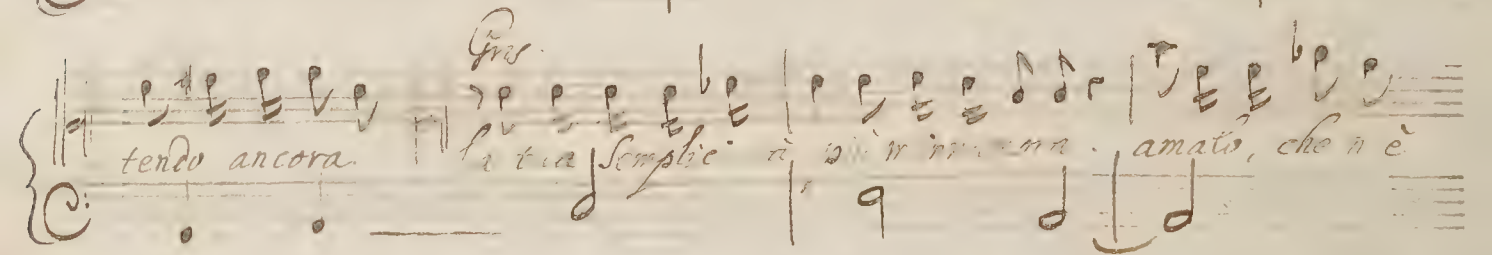 Gris.
tendo ancora. la tua Semplic à amato, che n è